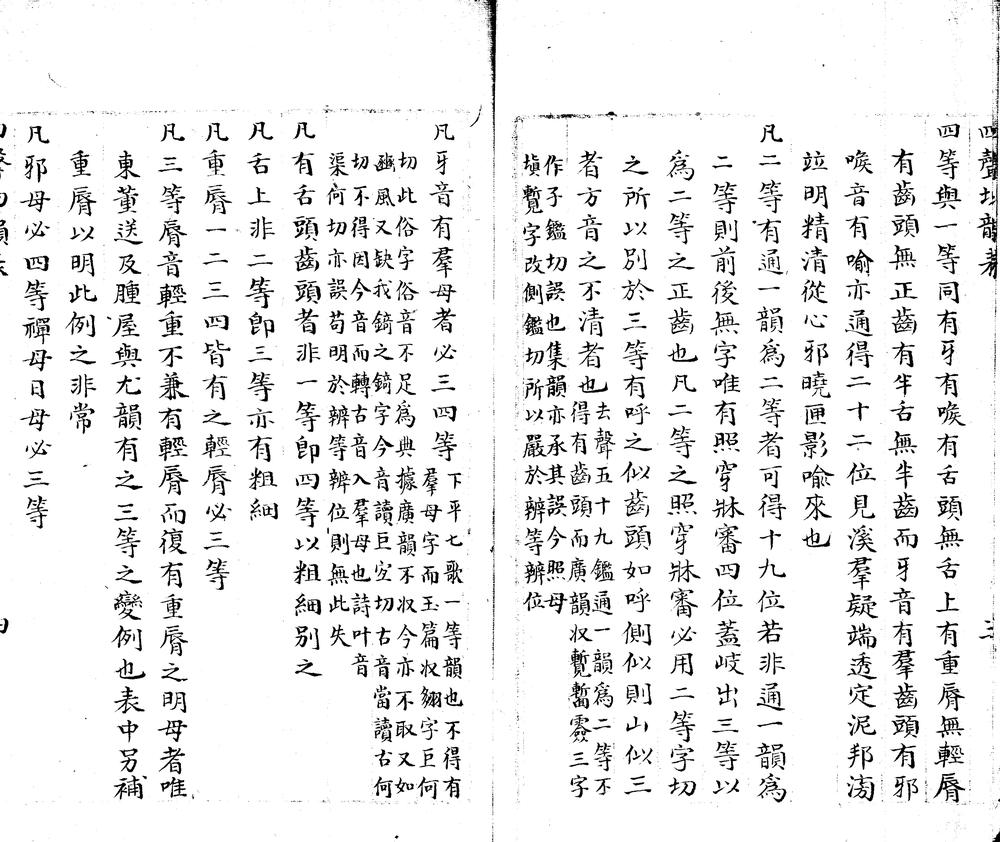 四聲切韻表
四等與一等同有牙有喉有舌頭無舌上有重脣無輕脣
有齒頭無正齒有半舌無半齒而牙音有羣齒頭有邪
喉音有喻亦通得二十二位見溪羣疑端透定泥邦滂
竝明精清從心邪曉匣影喻來也
凡二等有通一韻爲二等者可得十九位若非通一韻爲
二等則前後無字唯有照穿牀審四位蓋岐出三等以
爲二等之正齒也凡二等之照穿牀審必用二等字切
之所以別於三等有呼之似齒頭如呼側似則山似三
者方音之不清者也去聲五十九鑑通一韻爲二等不
得有齒頭而廣韻収覽暫霎三字
作子鑑切誤也集韻亦承其誤今照母
塡覽字改側鑑切所以嚴於辨等辨位
凡牙音有羣母者必三四等下平七歌一等韻也不得有
羣母字而玉篇収翗字巨何
切此俗字俗音不足爲典據廣韻不収今亦不取又如
豳風又缺我錡之錡字今音讀巨宜切古音當讀古何
切不得因今音而轉古音入羣母也詩叶音
渠何切亦誤苟明於辨等辨位則無此失
凡有舌頭齒頭者非一等卽四等以粗細别之
凡舌上非二等卽三等亦有粗細
凡重脣一二三四皆有之輕脣必三等
凡三等脣音輕重不兼有輕脣而復有重脣之明母者唯
東董送及腫屋與尤韻有之三等之變例也表中另補
重脣以明此例之非常
凡邪母必四等禪母日母必三等